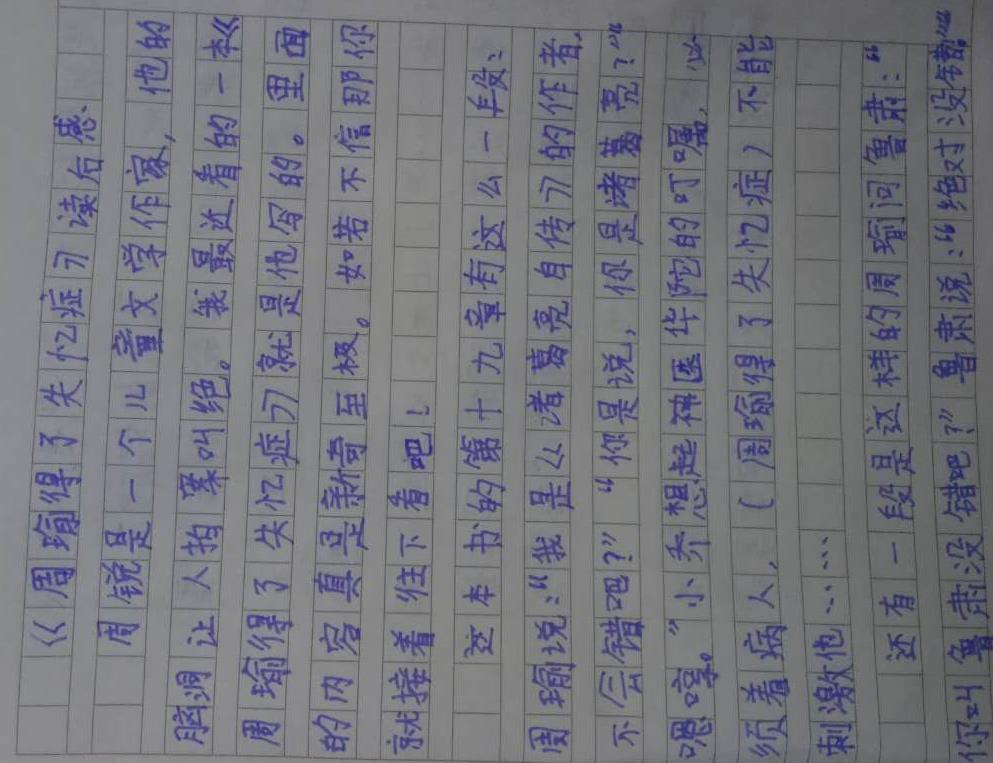 《周瑜得了失忆症》读后感
周锐是一个儿童文学作家，他的
脑洞让人拍案叫绝。我最近看的一本《
周瑜得了失忆症》就是他写的。里面
的内容真是新奇至极。如若不信那你
就接着往下看吧！
这本书的第十九章有这么一段：
周瑜说：“我是《诸葛亮自传》的作者，
不会错吧？”“你是说，你是诸葛亮？”
嗯哼。”小乔想起神医华陀的叮嘱，必
须着病人，（周瑜得了失忆症）不能
刺激他……
还有一段是这样的周瑜问鲁肃：“
你叫鲁肃没错吧？”鲁肃说：“绝对没错。”